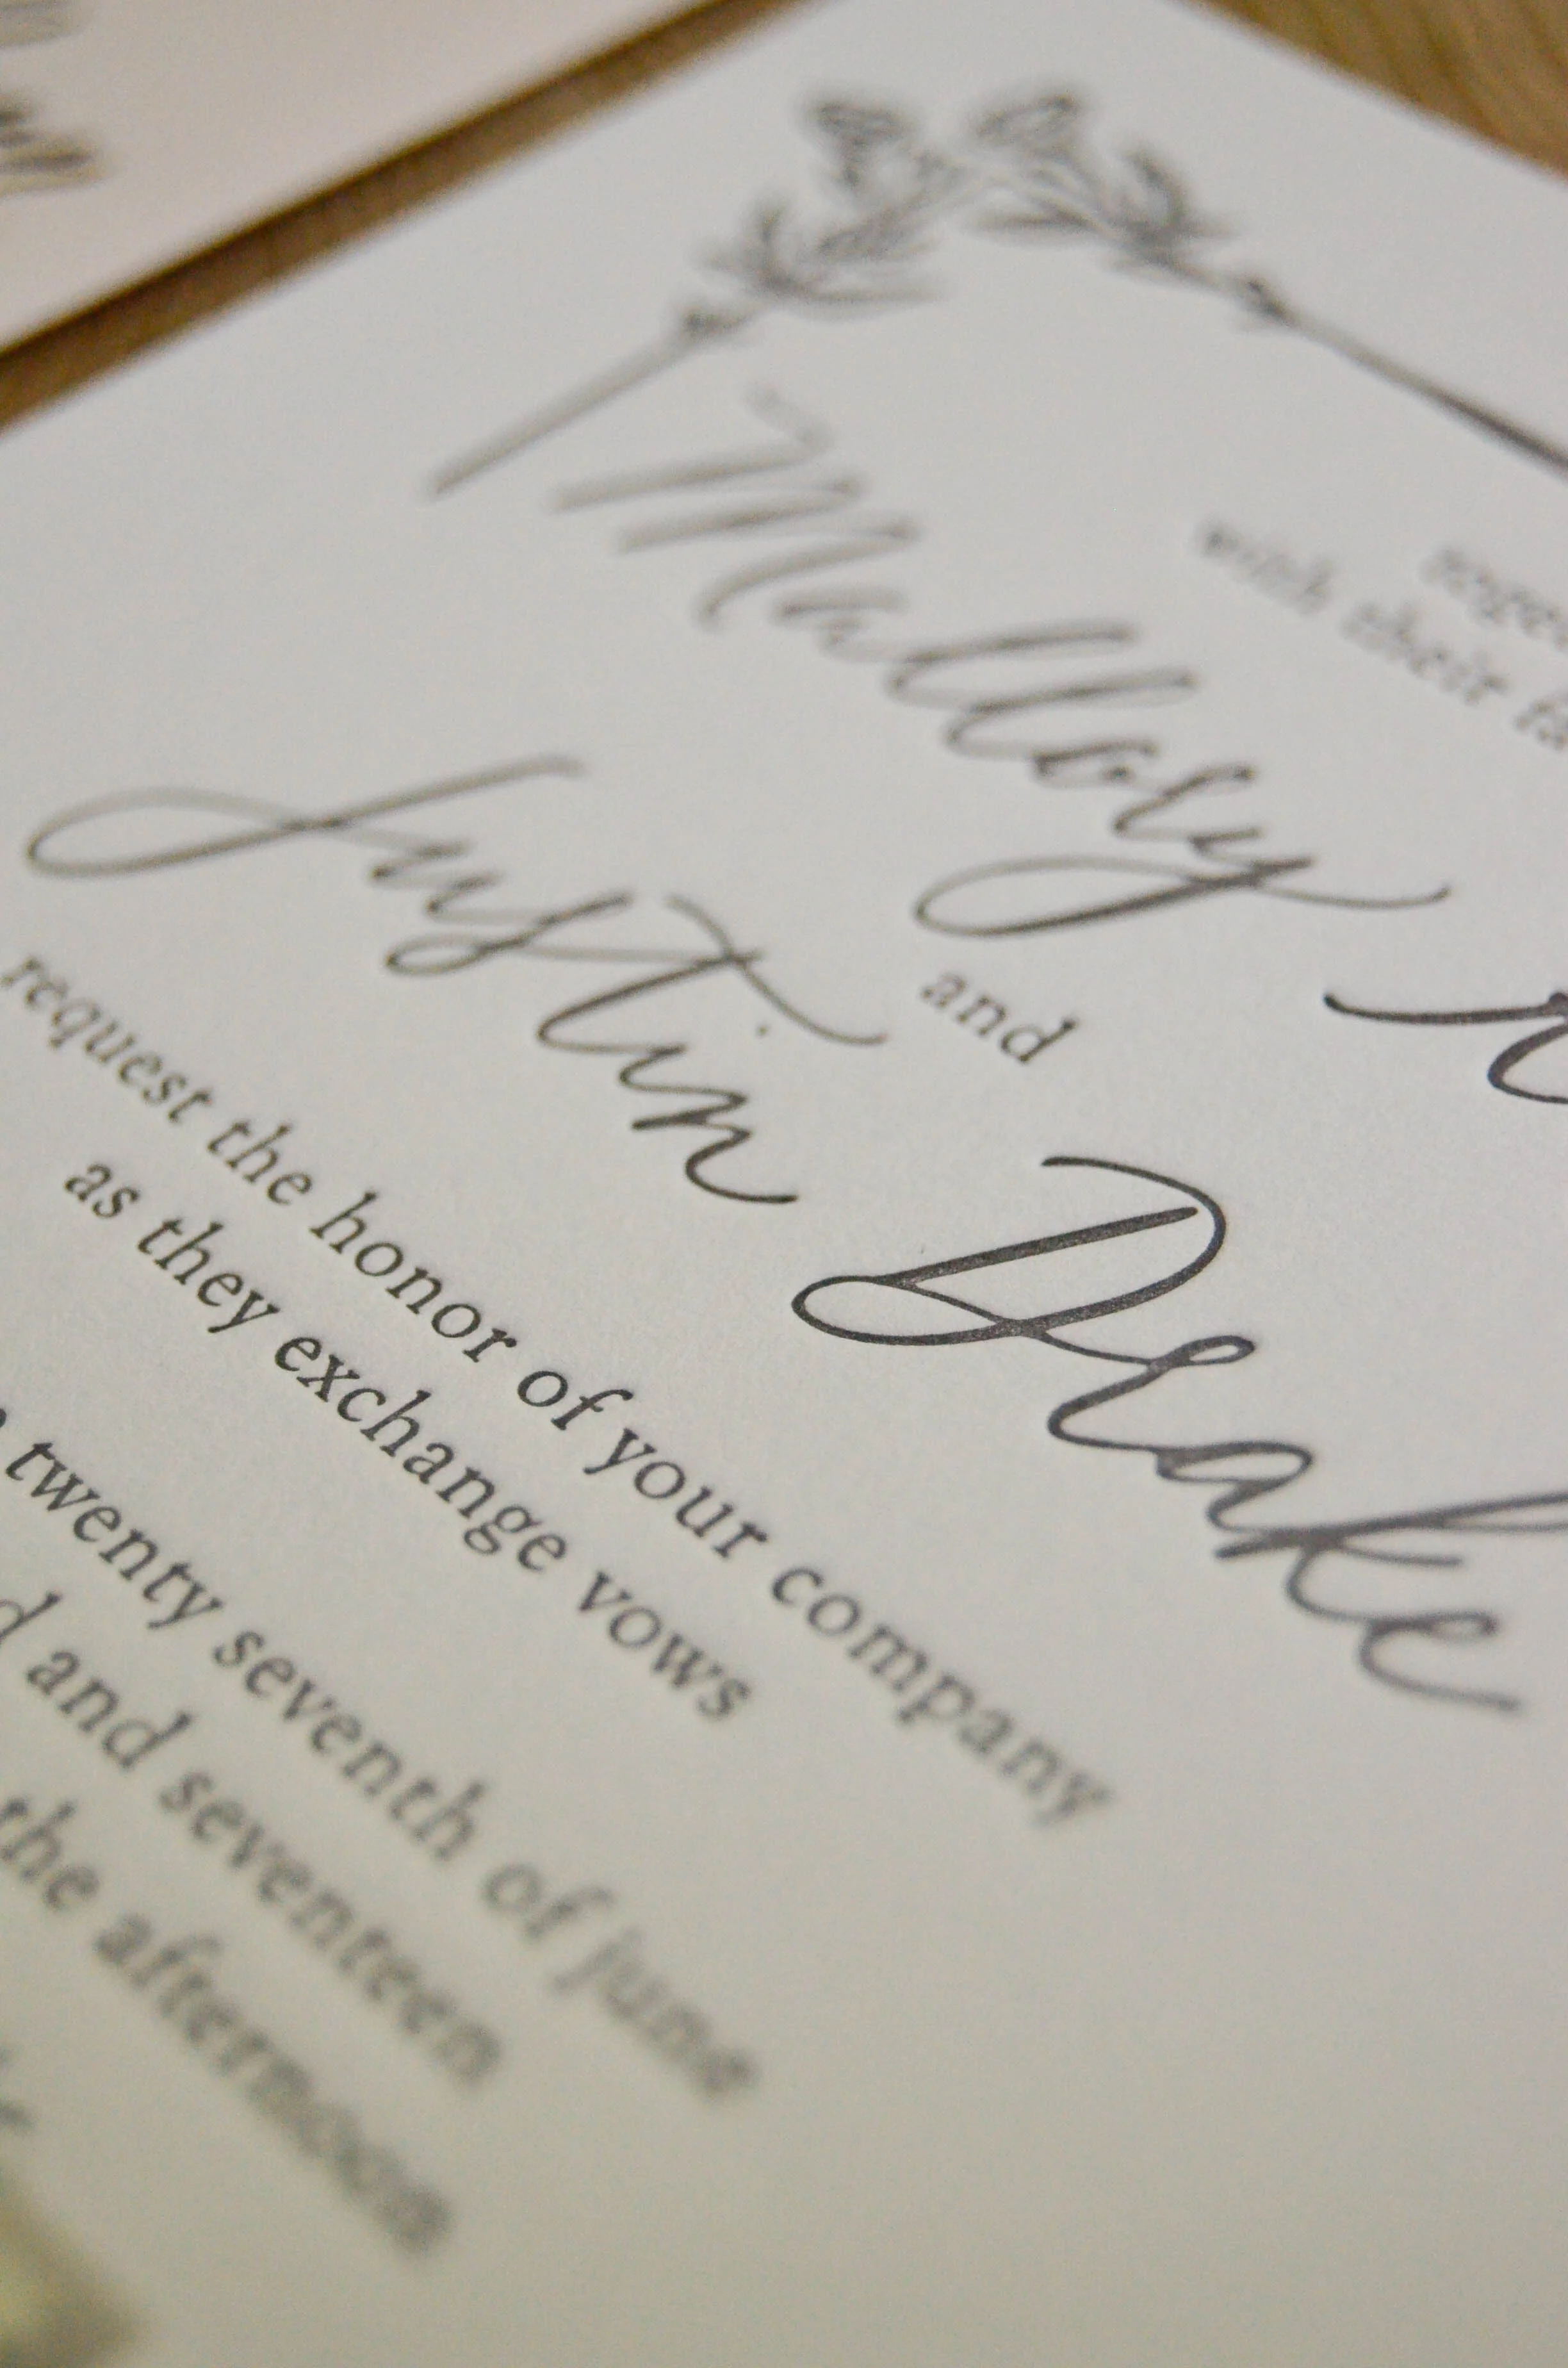 with their
Mallory
and
Justin Drake
request the honor of your company
as they exchange vows
twenty seventh of june
and seventeen
the afternoon